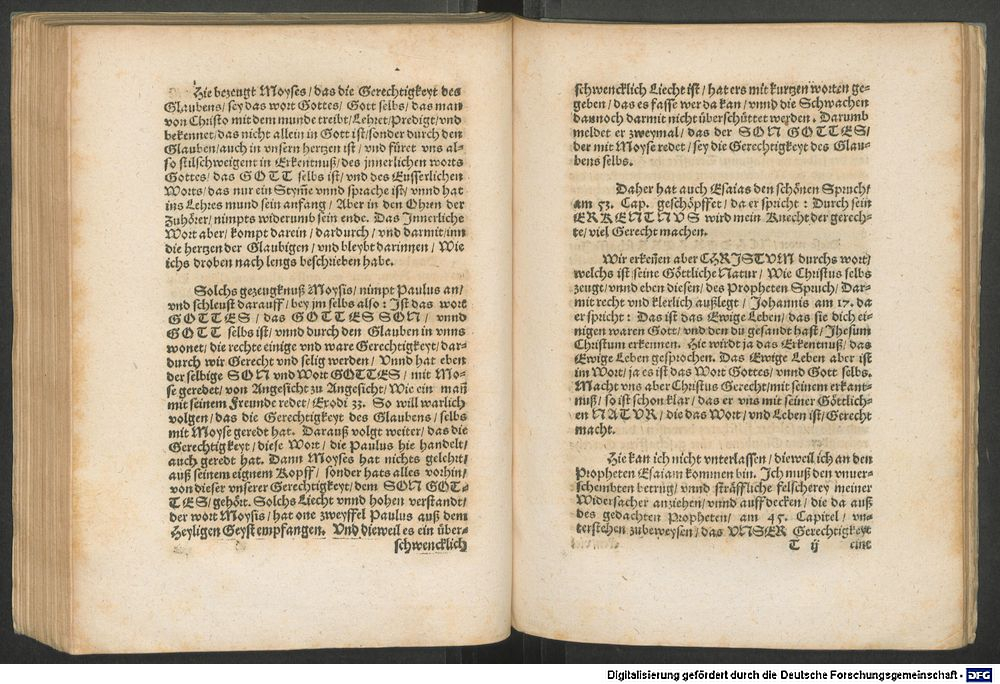 Hie bezeugt Moyses/ das die Gerechtigkeyt des
Glaubens/ sey das wort Gottes/ Gott selbs/ das man
von Christo mit dem munde treibt/ Lehret/ Predigt/ vnd
bekennet/ das nicht allein in Gott ist/ sonder durch den
Glauben/ auch in vnsern hertzen ist/ vnd füret vns al-
so stilschweigent in Erkentnuß/ des jnnerlichen worts
Gottes/ das GOTT selbs ist/ vnd des Eusserlichen
Worts/ das nur ein Stym̃e vnnd sprache ist/ vnnd hat
ins Lehres mund sein anfang/ Aber in den Ohren der
Zuhörer/ nimpts widerumb sein ende. Das Innerliche
Wort aber/ kompt darein/ dardurch/ vnd darmit/ inn
die hertzen der Glaubigen/ vnd bleybt darinnen/ Wie
ichs droben nach lengs beschrieben habe.
Solchs gezeugknuß Moysis/ nimpt Paulus an/
vnd schleust darauff/ bey jm selbs also: Ist das wort
GOTTES/ das GOTTES SON/ vnnd
GOTT selbs ist/ vnnd durch den Glauben in vnns
wonet/ die rechte einige vnd ware Gerechtigkeyt/ dar-
durch wir Gerecht vnd selig werden/ Vnnd hat eben
der selbige SON vnd Wort GOTTES/ mit Mo-
se geredet/ von Angesicht zu Angesicht/ Wie ein mañ
mit seinem Freunde redet/ Exodi 33. So will warlich
volgen/ das die Gerechtigkeyt des Glaubens/ selbs
mit Moyse geredt hat. Darauß volgt weiter/ das die
Gerechtigkeyt/ diese Wort/ die Paulus hie handelt/
auch geredt hat. Dann Moyses hat nichts gelehrt/
auß seinem eignem Kopff/ sonder hats alles vorhin/
von dieser vnserer Gerechtigkeyt/ dem SON GOT-
TES/ gehört. Solchs Liecht vnnd hohen verstandt/
der wort Moysis/ hat one zweyffel Paulus auß dem
Heyligen Geyst empfangen. Vnd dieweil es ein über-
schwencklich
schwencklich Liecht ist/ hat ers mit kurtzen worten ge-
geben/ das es fasse wer da kan/ vnnd die Schwachen
dannoch darmit nicht überschüttet werden. Darumb
meldet er zweymal/ das der SON GOTTES/
der mit Moyse redet/ sey die Gerechtigkeyt des Glau-
bens selbs.
Daher hat auch Esaias den schönen Spruch/
am 53. Cap. geschöpffet/ da er spricht: Durch sein
ERKENTNVS wird mein Knecht der gerech-
te/ viel Gerecht machen.
Wir erkeñen aber CHRISTVM durchs wort/
welchs ist seine Göttliche Natur/ Wie Christus selbs
zeugt/ vnnd eben diesen/ des Propheten Spruch/ Dar-
mit recht vnd klerlich außlegt/ Johannis am 17. da
er spricht: Das ist das Ewige Leben/ das sie dich ei-
nigen waren Gott/ vnd den du gesandt hast/ Jhesum
Christum erkennen. Hie wirdt ja das Erkentnuß/ das
Ewige Leben gesprochen. Das Ewige Leben aber ist
im Wort/ ja es ist das Wort Gottes/ vnnd Gott selbs.
Macht vns aber Christus Gerecht/ mit seinem erkant-
nuß/ so ist schon klar/ das er vns mit seiner Göttlich-
en NATVR/ die das Wort/ vnd Leben ist/ Gerecht
macht.
Hie kan ich nicht vnterlassen/ dieweil ich an den
Propheten Esaiam kommen bin. Ich muß den vnuer-
schembten betrug/ vnnd sträffliche felscherey meiner
Widersacher anziehen/ vnnd auffdecken/ die da auß
des gedachten Propheten/ am 45. Capitel/ vn-
terstehen zubeweysen/ das VNSER Gerechtigkeyt
T ij eine
Digitalisierung gefördert durch die Deutsche Forschungsgemeinschaft - DFG